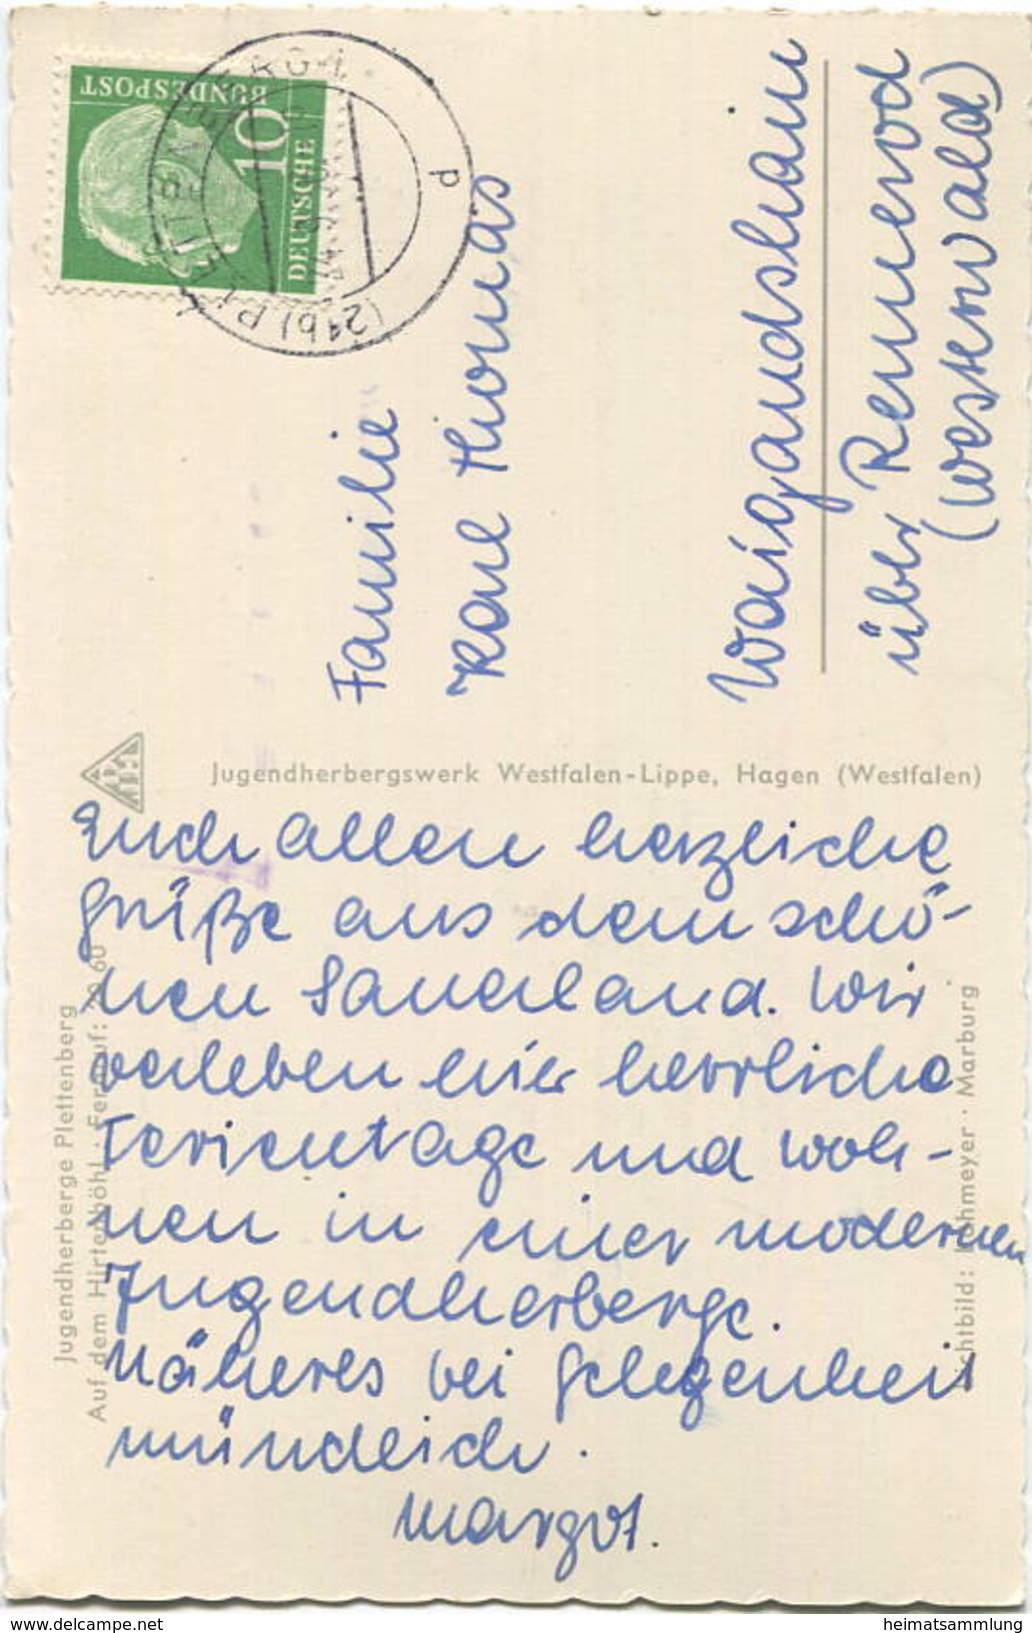 DEUTSCHE
BUNDESPOST
10
(21b) PLETTENBERG
p
Familie
Karl Thomas
Waigandshain
über Rennerod
(Westerwald)
Jugendherbergswerk Westfalen-Lippe, Hagen (Westfalen)
Euch allen herzliche
Grüße aus dem schö-
nen Sauerland. Wir
verleben hier herrliche
Ferientage und woh-
nen in einer modernen
Jugendherberge.
Näheres bei Gelegenheit
mündlich.
Margot.
Jugendherberge Plettenberg
Auf dem Hirtenböhl · Fernruf: 20 60
Lichtbild: Lohmeyer · Marburg
delcampe.net
heimatsammlung